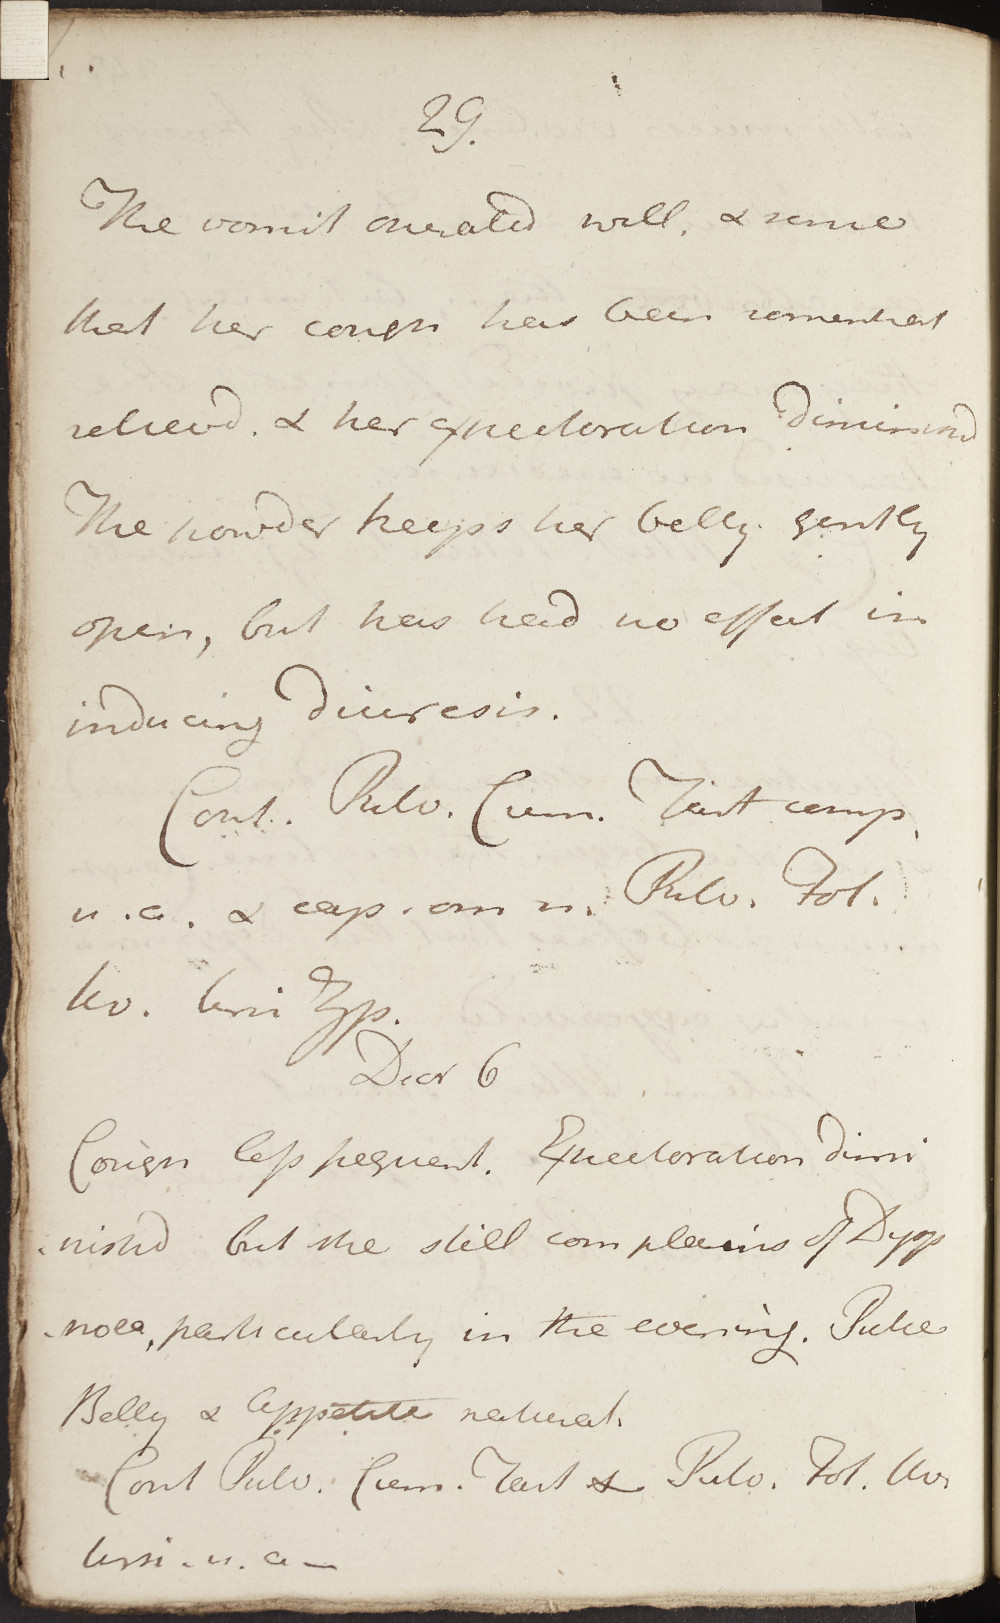 29.
The vomit operated well. & since
that her cough has been somewhat
relievd. & her expectoration diminishd
The powder keeps her belly gently
open, but has had no effect in
inducing diuresis.
Cont. Pulv. Crem. Tart comp.
u. a. & cap. omn n. Pulv. Fol.
Uv. Ursi
Decr 6
Cough less frequent. Expectoration dimi
-nishd but she still complains of Dysp
-noea, particularly in the evening. Pulse
Belly & appetite natural.
Cont Pulv. Crem. Tart & Pulv. Fol. Uv.
Ursi. u. a —